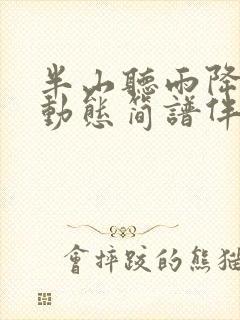 半山聽雨降
動態簡譜伴
會摔跤的熊貓